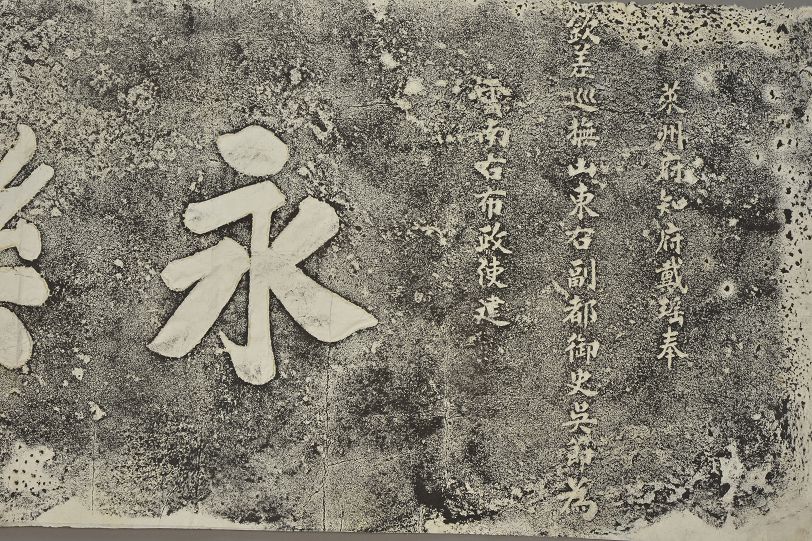 萊州府知府戴瑤奉
欽差巡撫山東右副都御史吳為
雲南右布政使建
永